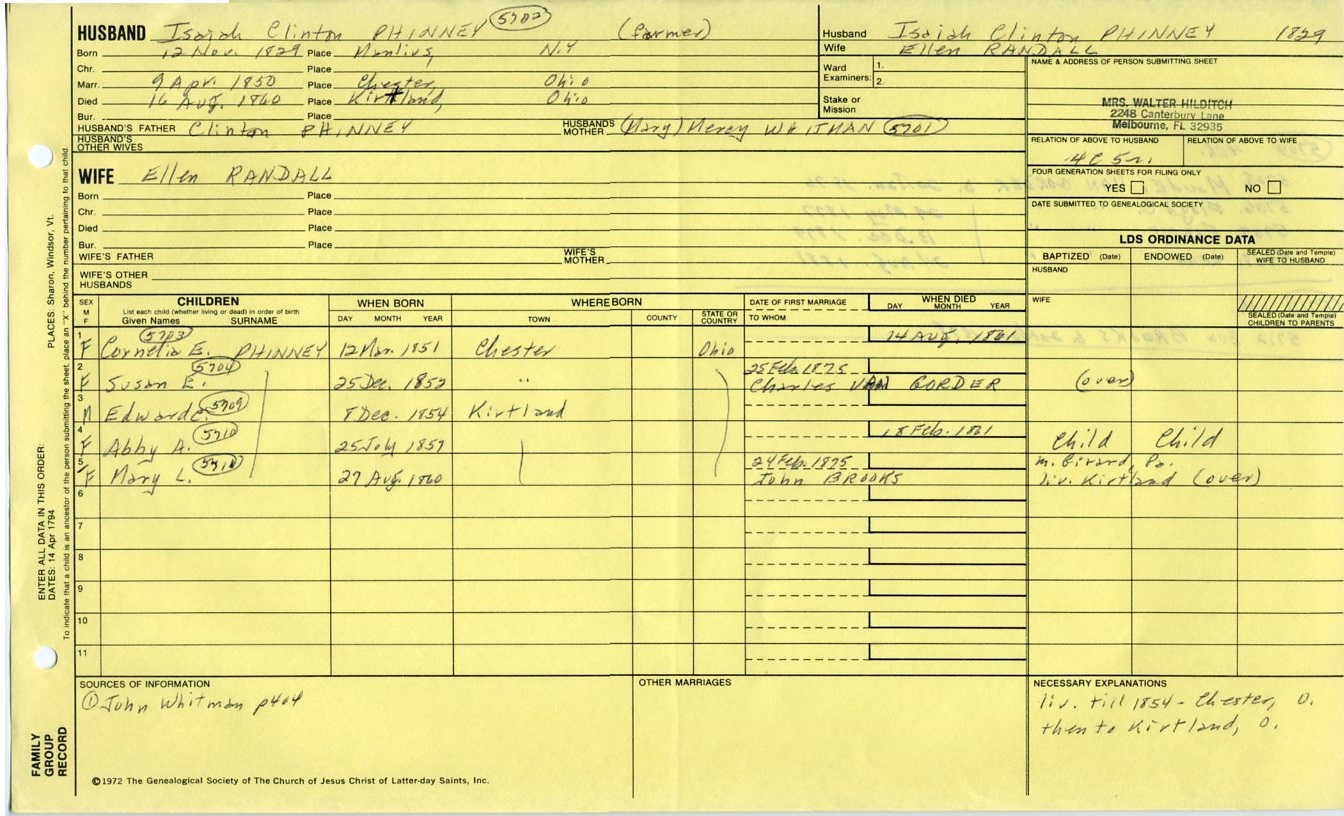 HUSBAND Isaiah Clinton PHINNEY 5702 (farmer)
Born 12 Nov. 1829 Place Manlius, N.Y
Chr. Place
Marr. 9 Apr. 1850 Place Chester, Ohio
Died 16 Aug. 1860 Place Kirtland, Ohio
Bur. Place
HUSBAND'S FATHER Clinton PHINNEY HUSBAND'S MOTHER (Mary) Mercy WHITMAN 5701
HUSBAND'S OTHER WIVES
Husband Isaiah Clinton PHINNEY 1829
Wife Ellen RANDALL
Ward 1.
Examiners: 2.
Stake or Mission
NAME & ADDRESS OF PERSON SUBMITTING SHEET
MRS. WALTER HILDITCH
2248 Canterbury Lane
Melbourne, FL 32935
RELATION OF ABOVE TO HUSBAND RELATION OF ABOVE TO WIFE
4C 5r.
FOUR GENERATION SHEETS FOR FILING ONLY
YES NO
DATE SUBMITTED TO GENEALOGICAL SOCIETY
WIFE Ellen RANDALL
Born Place
Chr. Place
Died Place
Bur. Place
WIFE'S FATHER WIFE'S MOTHER
WIFE'S OTHER HUSBANDS
LDS ORDINANCE DATA
BAPTIZED (Date) ENDOWED (Date) SEALED (Date and Temple) WIFE TO HUSBAND
HUSBAND
WIFE
SEALED (Date and Temple) CHILDREN TO PARENTS
SEX M F CHILDREN WHEN BORN WHERE BORN DATE OF FIRST MARRIAGE WHEN DIED
List each child (whether living or dead) in order of birth
Given Names SURNAME DAY MONTH YEAR TOWN COUNTY STATE OR COUNTRY TO WHOM DAY MONTH YEAR
1 F Cornelia E. PHINNEY 5703 12 Mar. 1851 Chester Ohio 14 AUG. 1861
2 F Susan E. 5704 25 Dec. 1852 " 25 Feb. 1875 Charles VAN GORDER (over)
3 M Edward C. 5709 8 Dec. 1854 Kirtland
4 F Abby A. 5710 25 July 1857 18 Feb. 1861 Child Child
5 F Mary L. 27 Aug. 1860 24 Feb. 1875 John BROOKS m. Girard, Pa. liv. Kirtland (over)
6
7
8
9
10
11
SOURCES OF INFORMATION
① John Whitman p404
OTHER MARRIAGES
NECESSARY EXPLANATIONS
liv. till 1854 - Chester, O.
then to Kirtland, O.
©1972 The Genealogical Society of The Church of Jesus Christ of Latter-day Saints, Inc.
FAMILY GROUP RECORD
ENTER ALL DATA IN THIS ORDER:
DATES: 14 Apr 1794 PLACES: Sharon, Windsor, Vt.
To indicate that a child is an ancestor of the person submitting the sheet, place an "X" behind the number pertaining to that child.